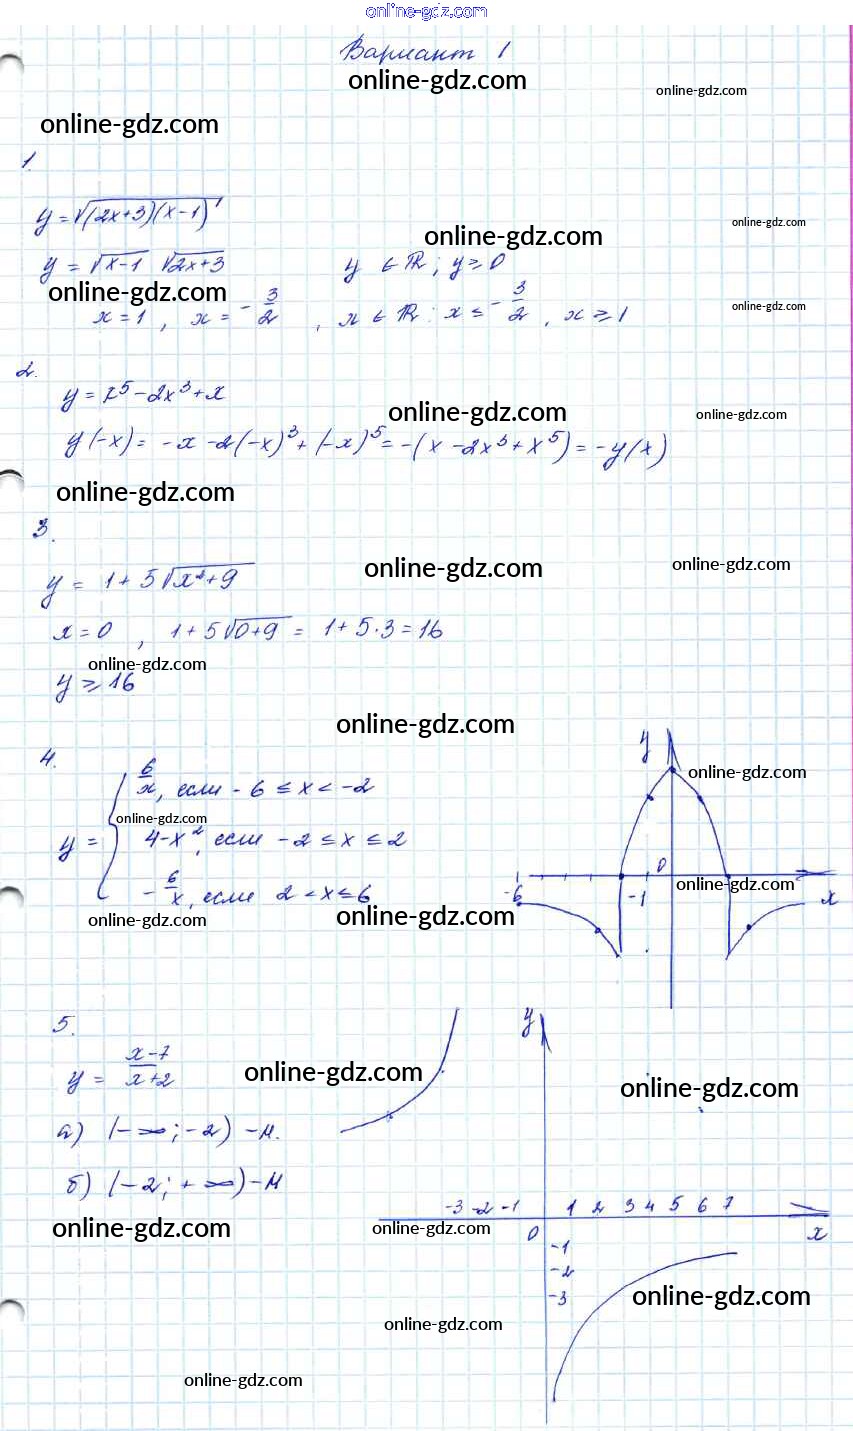 online-gdz.com
Вариант 1
online-gdz.com
online-gdz.com
online-gdz.com
1.
y = √(2x+3)(x-1)
online-gdz.com
online-gdz.com
y = √x-1 √2x+3 y ∈ ℝ; y ≥ 0
online-gdz.com
online-gdz.com
x = 1, x = -3/2, x ∈ ℝ: x ≤ -3/2, x ≥ 1
2.
y = x⁵ - 2x³ + x
online-gdz.com
online-gdz.com
y(-x) = -x - 2(-x)³ + (-x)⁵ = -(x - 2x³ + x⁵) = -y(x)
online-gdz.com
3.
online-gdz.com
online-gdz.com
y = 1 + 5√x²+9
x = 0, 1 + 5√0+9 = 1 + 5·3 = 16
online-gdz.com
y ≥ 16
online-gdz.com
4.
6/x, если -6 ≤ x < -2
online-gdz.com
y = { 4-x², если -2 ≤ x ≤ 2
-6/x, если 2 < x ≤ 6
online-gdz.com
online-gdz.com
y
online-gdz.com
0
online-gdz.com
-6 -1 x
5.
y = x-7/x+2
online-gdz.com
online-gdz.com
а) (-∞; -2) - м.
б) (-2; +∞) - м
online-gdz.com
online-gdz.com
y
-3 -2 -1 1 2 3 4 5 6 7
0 x
-1
-2
-3
online-gdz.com
online-gdz.com
online-gdz.com